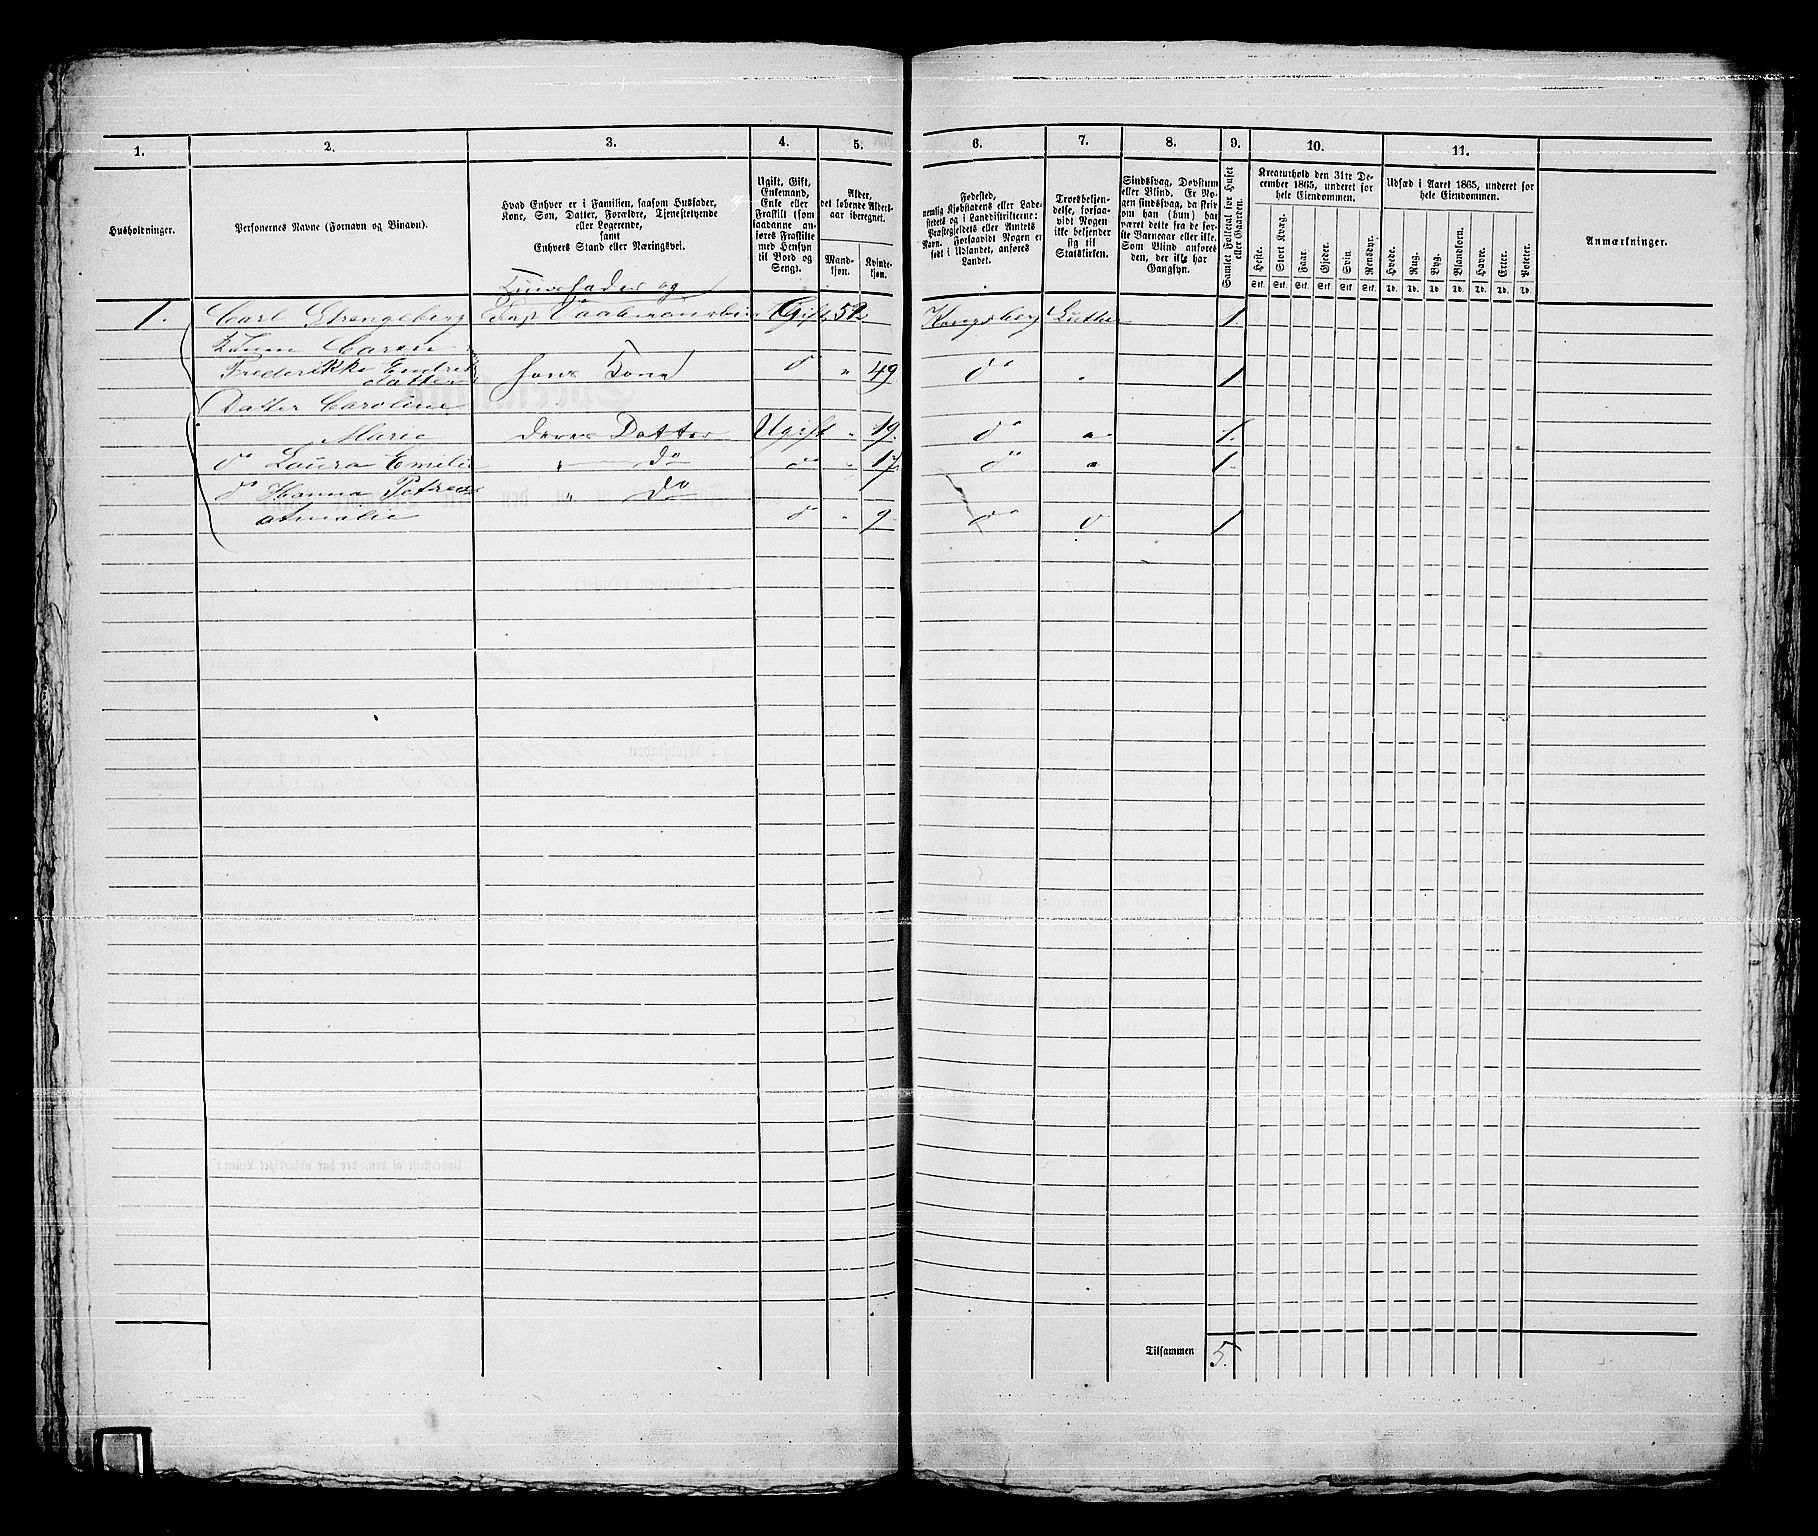 1.
2.
3.
4.
5.
Husholdninger.
Personernes Navne (Fornavn og Binavn).
Hvad Enhver er i Familien, saasom Husfader,
Kone, Søn, Datter, Forældre, Tjenestetyende
eller Logerende,
samt
Enhvers Stand eller Næringsvei.
Ugift, Gift,
Enkemand,
Enke eller
Fraskilt (som
saadanne an-
føres Fraskilte
med Hensyn
til Bord og
Seng).
Alder,
det løbende Alders-
aar iberegnet.
Mand-
kjøn.
Kvinde-
kjøn.
6.
7.
8.
9.
10.
11.
Fødested,
nemlig Kjøbstadens eller Lade-
stedets og i Landdistrikterne:
Præstegjeldets eller Amtets
Navn. Forsaavidt Nogen er
født i Udlandet, anføres
Landet.
Troesbekjen-
delse, forsaa-
vidt Nogen
ikke bekjender
sig til
Statskirken.
Sindssvag, Døvstum
eller Blind. Er No-
gen sindssvag, da skri-
om han (hun) har
været dette fra de før-
ste Barneaar eller ikke.
Som Blind anføres
den, der ikke har
Gangsyn.
Samlet Folketal for Huset
eller Gaarden.
Kreaturhold den 31te De-
cember 1865, underet for
hele Eiendommen.
Heste.
Stort Kvæg.
Faar.
Gjeder.
Svin
Rensdyr.
Stk. Stk. Stk. Stk. Stk. Stk.
Udsæd i Aaret 1865, underet for
hele Eiendommen.
Hvede.
Rug.
Byg.
Blandkorn.
Havre.
Erter.
Poteter.
Td. Td. Td. Td. Td. Td. Td.
Anmærkninger.
Huusfader og
1. Carl Strengeberg Gift 52 Kongsberg Luther 1.
Konen Caren
Frederikke Endres
datter hans Kone do " 49 do " 1
Datter Caroline
Marie deres Datter Ugift " 19. do " 1.
do Laura Emilie " do do " 17 do " 1.
do Hanna Petrea " do
Amalie do " 9 do do 1
Tilsammen 5.